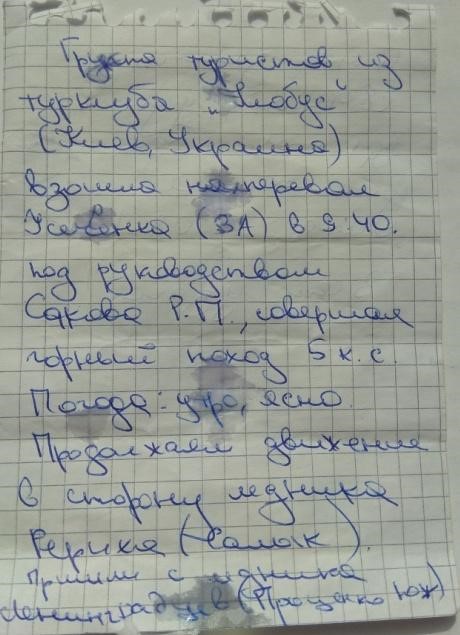 Группа туристов из
турклуба "Глобус"
(Киев, Украина)
взошла на перевал
(3А) в 9:40.
под руководством
Р.П., совершая
горный поход 5 к.с.
Погода: утро, ясно.
Продолжаем движение
в сторону ледника
Рериха (Салык).
Пришли с ледника
Ленинградцев (Проценко Юж)